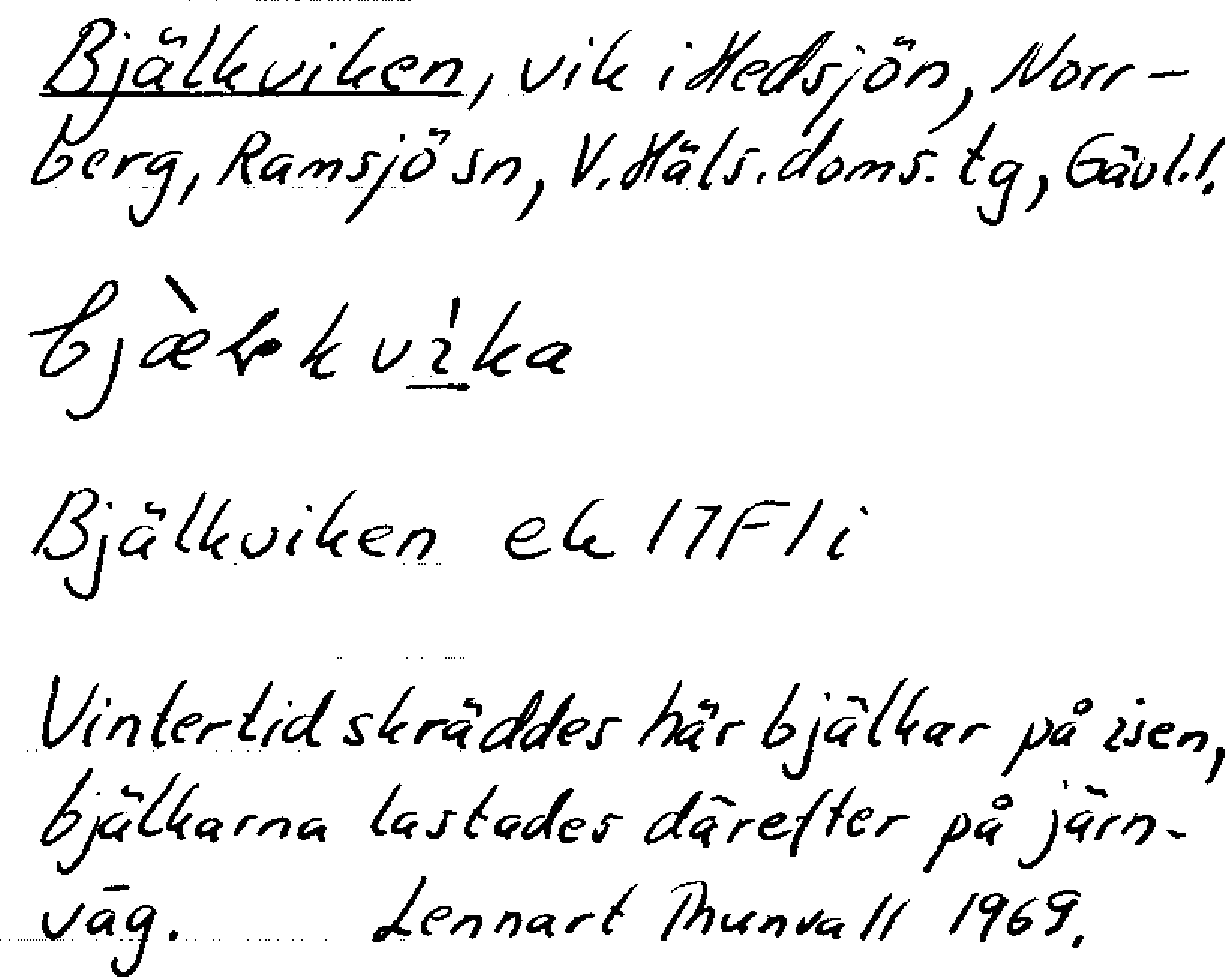 Bjälkviken, vik i Hedsjön, Norr-
berg, Ramsjö sn, V. Häls. doms. tg, Gävl.l.
Bjälkviken ek 17F1i
Vintertid skräddes här bjälkar på isen,
bjälkarna lastades därefter på järn-
väg. Lennart Thunvall 1969.